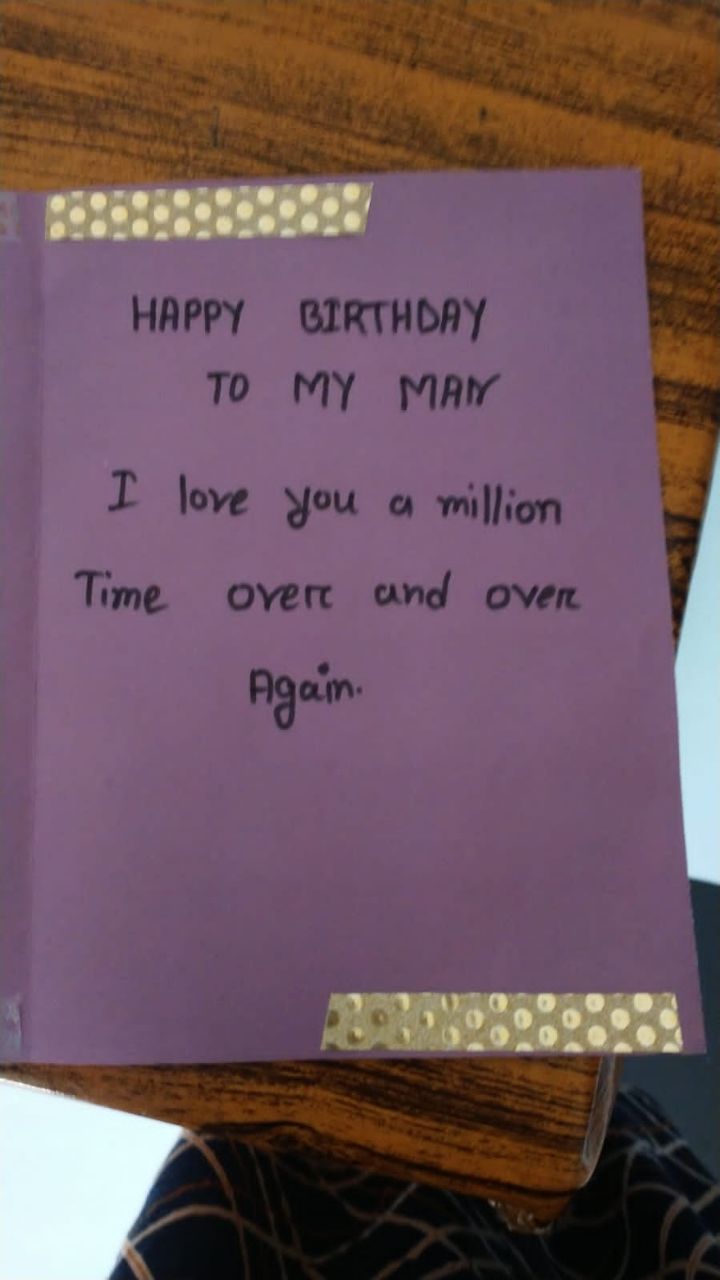 HAPPY BIRTHDAY
TO MY MAN
I love you a million
Time over and over
Again.